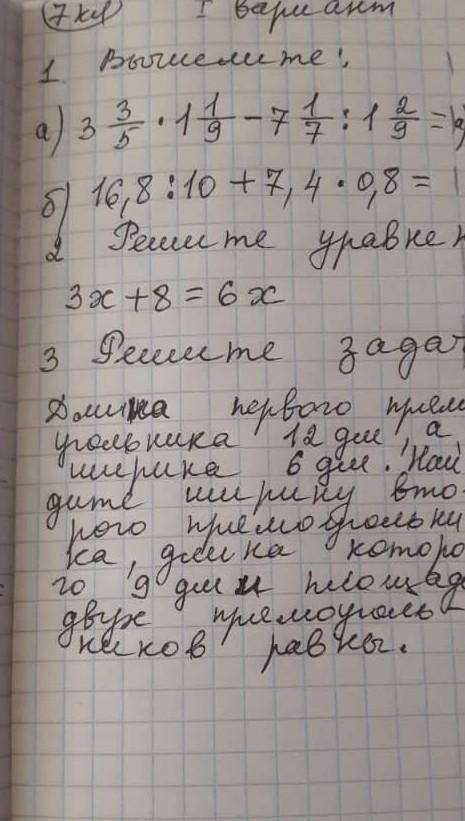 7 кл I вариант
1 Вычислите:
а) 3 3/5 · 1 1/9 − 7 1/7 : 1 2/9 =
б) 16,8 : 10 + 7,4 · 0,8 =
2 Решите уравне
3x + 8 = 6x
3 Решите задач
Длина первого прям
угольника 12 дм, а
ширина 6 дм. Най
дите ширину вто-
рого прямоугольни
ка, длина которо
го 9 дм и площад
двух прямоуголь
ников равны.